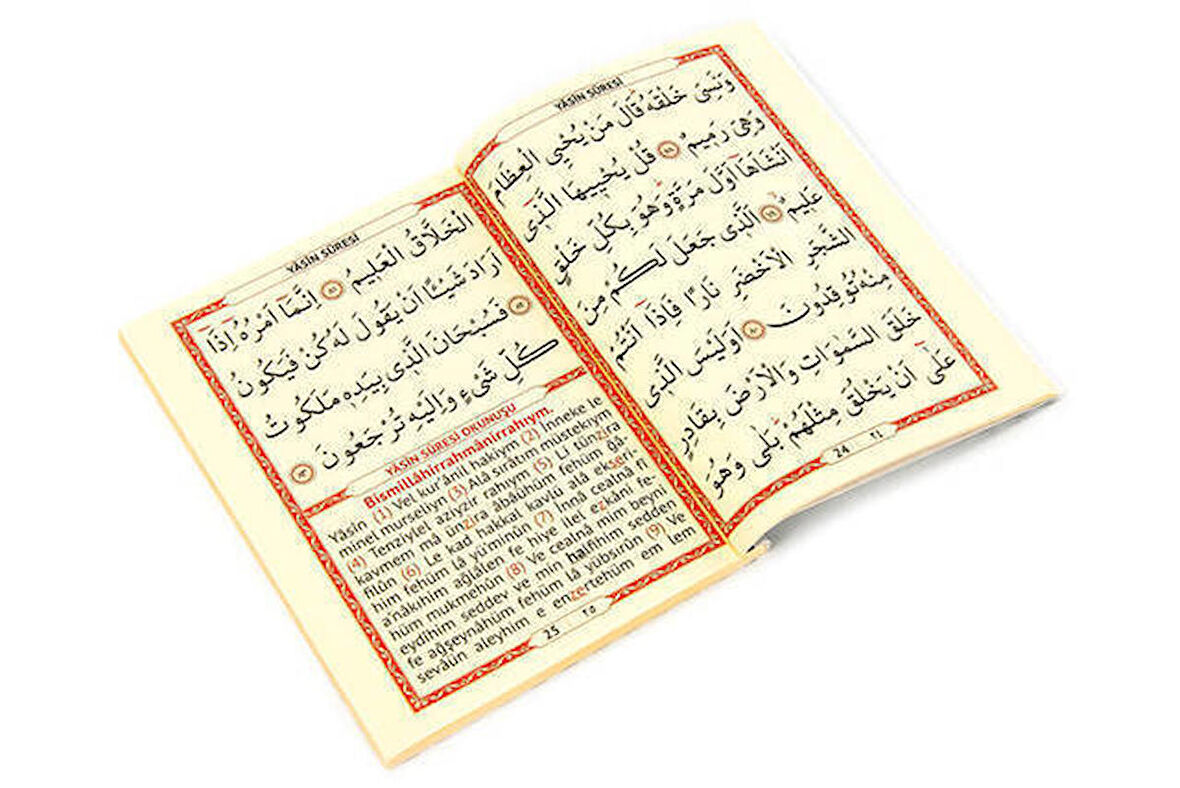 YÂSİN SÛRESİ
وَنَسِىَ خَلْقَهُ قَالَ مَنْ يُحْيِى الْعِظَامَ
وَهِىَ رَمِيمٌ ٧٨ قُلْ يُحْيِيهَا الَّذِى
اَنْشَاَهَٓا اَوَّلَ مَرَّةٍ وَهُوَ بِكُلِّ خَلْقٍ
عَلِيمٌ ٧٩ اَلَّذِى جَعَلَ لَكُمْ مِنَ
الشَّجَرِ الْاَخْضَرِ نَارًا فَاِذَٓا اَنْتُمْ
مِنْهُ تُوقِدُونَ ٨٠ اَوَلَيْسَ الَّذِى
خَلَقَ السَّمٰوَاتِ وَالْاَرْضَ بِقَادِرٍ
عَلٰٓى اَنْ يَخْلُقَ مِثْلَهُمْ بَلٰى وَهُوَ
24 ٢٤
YÂSİN SÛRESİ
الْخَلَّاقُ الْعَلِيمُ ٨١ اِنَّمَٓا اَمْرُهُٓ اِذَٓا
اَرَادَ شَيْئًا اَنْ يَقُولَ لَهُ كُنْ فَيَكُونُ
٨٢ فَسُبْحَانَ الَّذِى بِيَدِهِ مَلَكُوتُ
كُلِّ شَىْءٍ وَاِلَيْهِ تُرْجَعُونَ ٨٣
YÂSİN SÛRESİ OKUNUŞU
Bismillâhirrahmânirrahıym.
Yâsîn (1) Vel kur'ânil hakiym (2) İnneke le
minel murseliyn (3) Alâ sırâtım müstekıym
(4) Tenziylel aziyzir rahıym (5) Li tünzira
kavmem mâ ünzira âbâühüm fehüm ğâ-
filûn (6) Le kad hakkal kavlü alâ ekseri-
him fehüm lâ yü'minûn (7) İnnâ cealnâ fî
a'nâkıhim ağlâlen fe hiye ilel ezkâni fe-
hüm mukmehûn (8) Ve cealnâ mim beyni
eydîhim seddev ve min halfihim sedden
fe ağşeynâhüm fehüm lâ yübsırûn (9) Ve
sevâün aleyhim e enzertehüm em lem
25 ٢٥